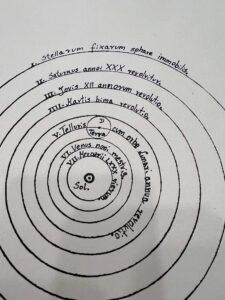 I. Stellarum fixarum sphæra immobilis.
II. Saturnus anno XXX revolvitur.
III. Jovis XII annorum revolutio.
IIII. Martis bima revolutio.
V. Telluris cum orbe lunari annua revolutio.
Terra
VI. Venus noni mestris
VII. Mercurii LXXX dierum.
Sol.